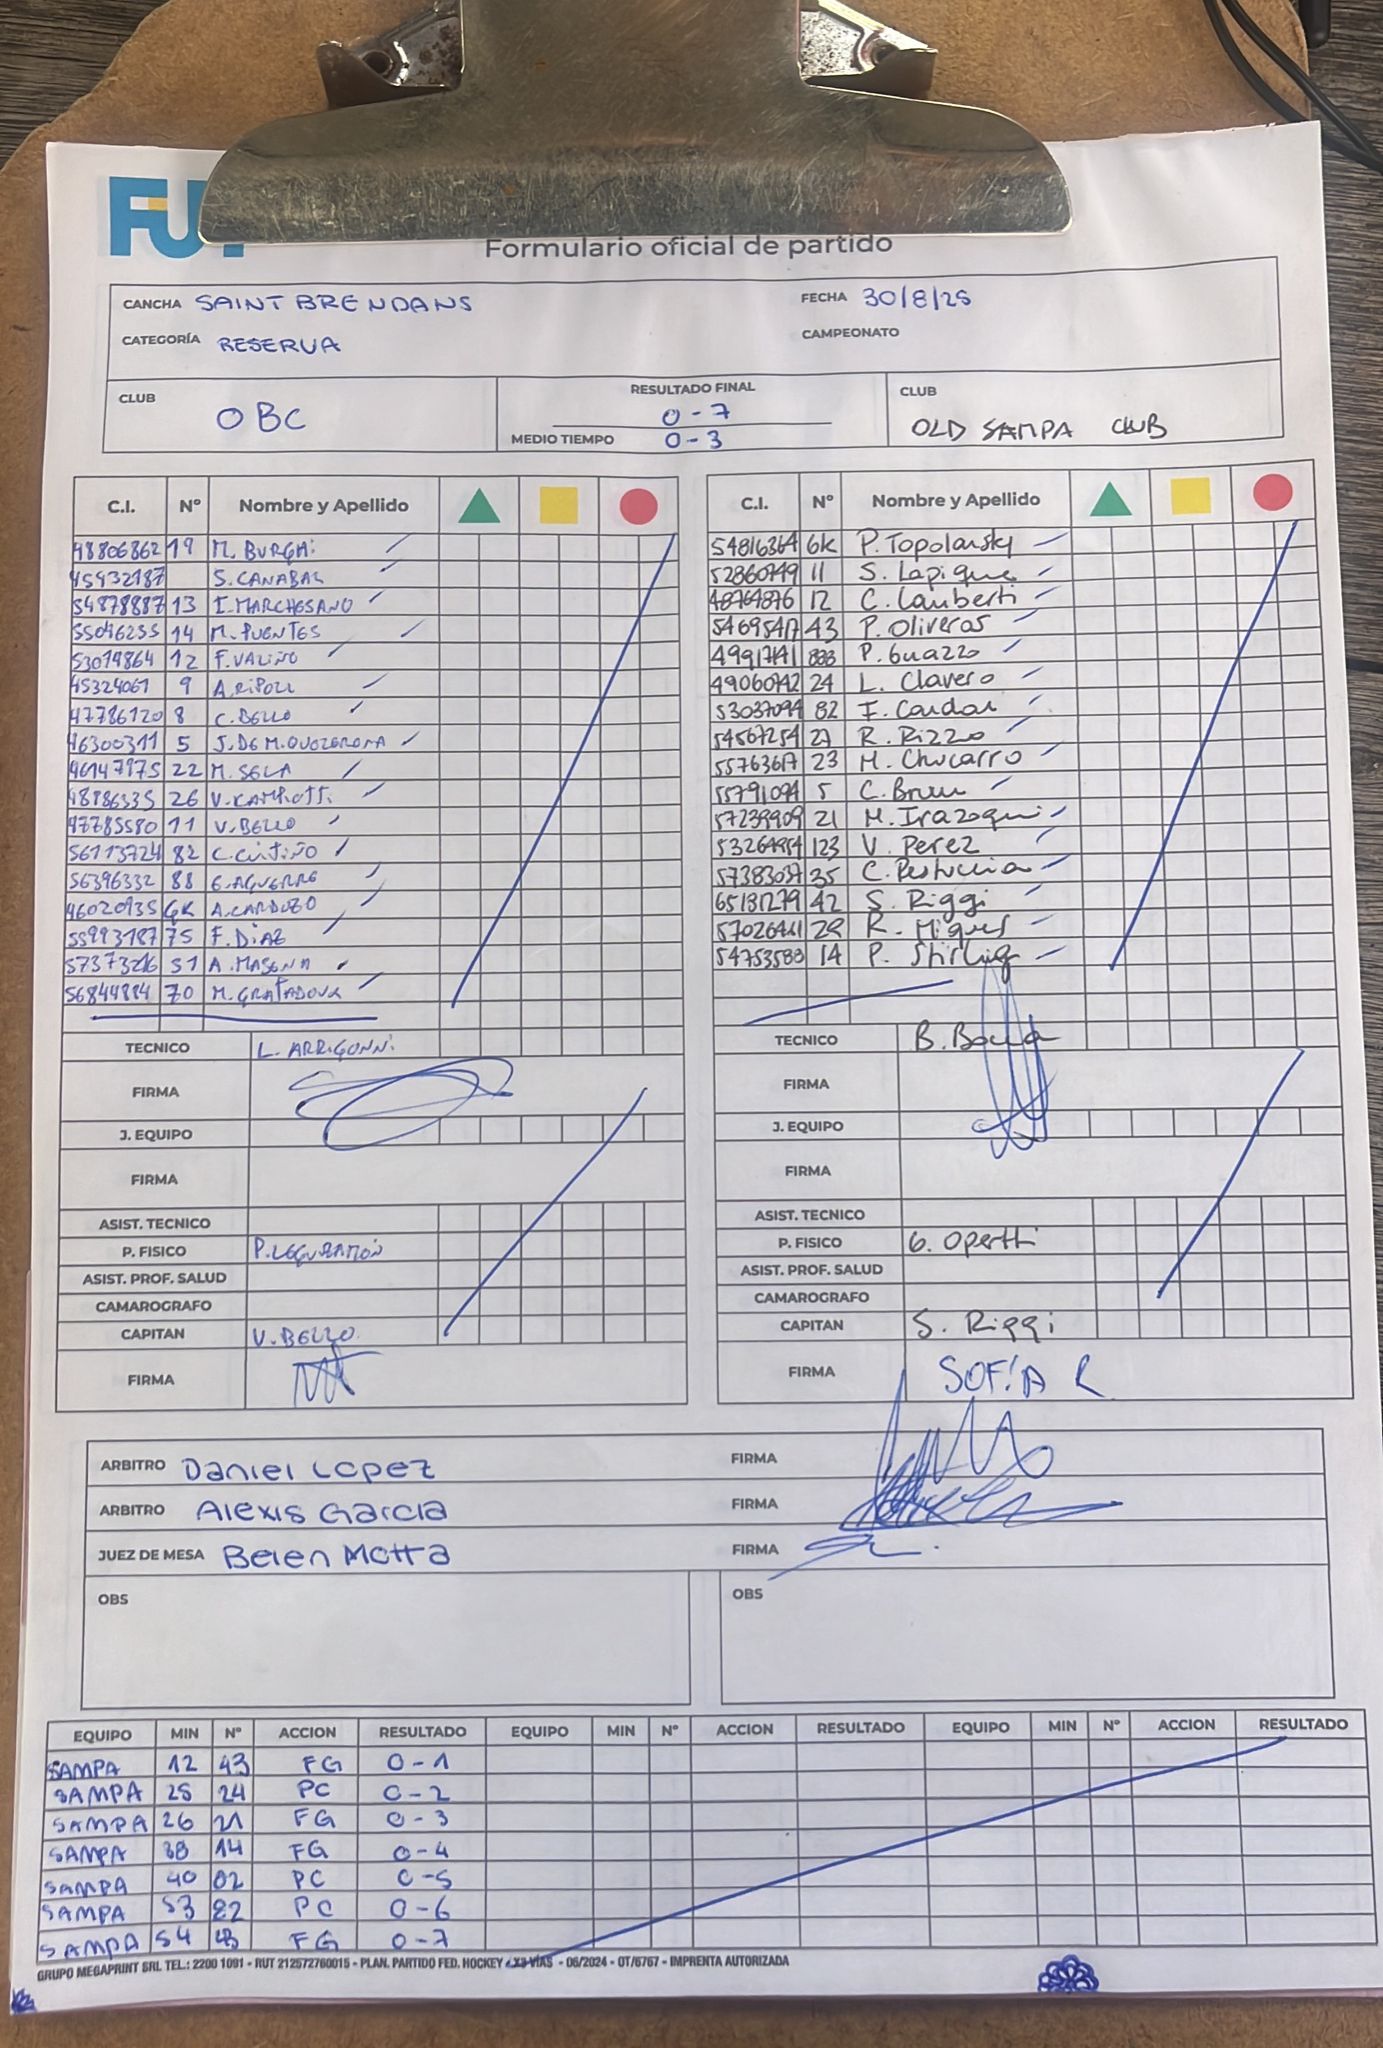 Formulario oficial de partido
CANCHA SAINT BRENDANS FECHA 30/8/25
CATEGORÍA RESERVA CAMPEONATO
CLUB OBC
RESULTADO FINAL 0-7
MEDIO TIEMPO 0-3
CLUB OLD SAMPA CLUB
C.I. Nº Nombre y Apellido
48806862 19 M. BURGHI
45932187 S. CANABAL
54878887 13 I. MARCHESANO
55046235 14 M. PUENTES
53019864 12 F. VALIÑO
45324061 9 A. RIPOLL
47786120 8 C. BELLO
46300311 5 J. DE M.
46147975 22 M. SELA
48186335 26
47785580 11 V. BELLO
56113724 82
56396332 88 E. AGUERRE
46020935 GK A. CARDOZO
55993187 75 F. DIAZ
57373216 51 A. MASENA
56844814 70 M. GRATADOUX
TECNICO L. ARRIGONNI
FIRMA
J. EQUIPO
FIRMA
ASIST. TECNICO
P. FISICO
ASIST. PROF. SALUD
CAMAROGRAFO
CAPITAN V. BELLO
FIRMA
C.I. Nº Nombre y Apellido
54816364 GK P. Topolansky
52860749 11 S. Lapique
48764876 12 C. Lamberti
54695417 43 P. Oliveras
49917141 P. Guazzo
49060742 24 L. Clavero
53037094 82 I. Cardoni
54567254 27 R. Rizzo
55763617 23 M. Chucarro
55791094 5 C. Brum
57239909 21 M. Irazoqui
53264954 123 V. Perez
57383037 35 C. Pestuccia
65131279 42 S. Riggi
29 R. Migues
54753583 14 P. Stirling
TECNICO
FIRMA
J. EQUIPO
FIRMA
ASIST. TECNICO
P. FISICO G. Opertti
ASIST. PROF. SALUD
CAMAROGRAFO
CAPITAN S. Riggi
FIRMA SOFÍA R
ARBITRO Daniel Lopez FIRMA
ARBITRO Alexis Garcia FIRMA
JUEZ DE MESA Belen Motta FIRMA
OBS OBS
EQUIPO MIN Nº ACCION RESULTADO EQUIPO MIN Nº ACCION RESULTADO EQUIPO MIN Nº ACCION RESULTADO
SAMPA 12 43 FG 0-1
SAMPA 25 24 PC 0-2
SAMPA 26 21 FG 0-3
SAMPA 38 14 FG 0-4
SAMPA 40 PC 0-5
SAMPA 53 82 PC 0-6
SAMPA 54 43 FG 0-7
GRUPO MEGAPRINT SRL TEL.: 2200 1091 - RUT 212572760015 - PLAN. PARTIDO FED. HOCKEY 4 X3 VÍAS - 06/2024 - OT/6767 - IMPRENTA AUTORIZADA